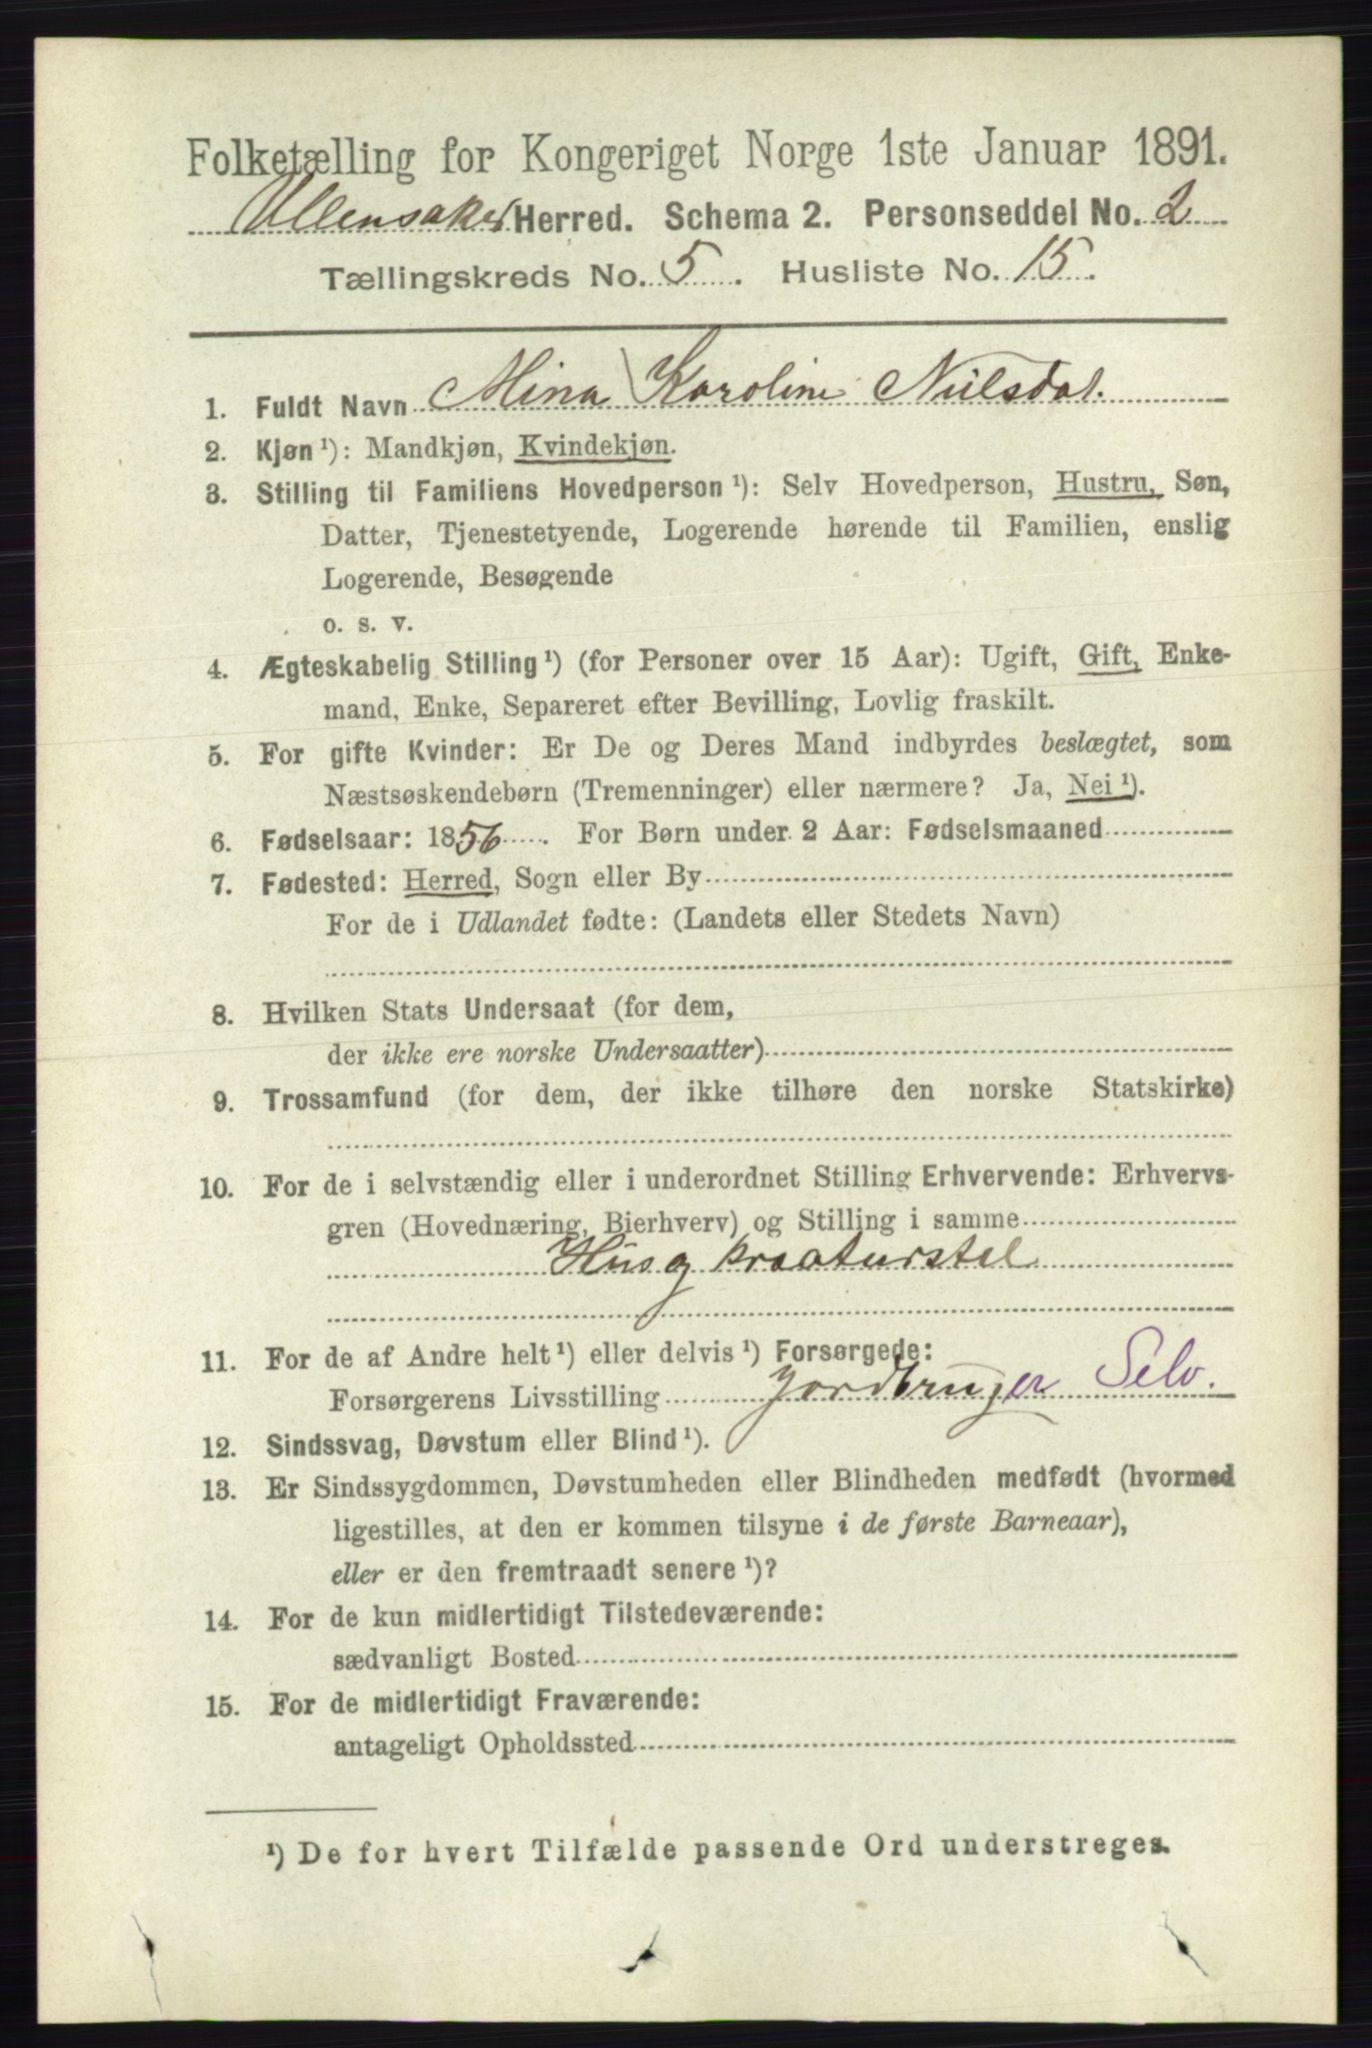 Folketælling for Kongeriget Norge 1ste Januar 1891.
Ullensaker Herred. Schema 2. Personseddel No. 2
Tællingskreds No. 5. Husliste No. 15.
1. Fuldt Navn Mina Karoline Nilsdat.
2. Kjøn ¹): Mandkjøn, Kvindekjøn.
3. Stilling til Familiens Hovedperson ¹): Selv Hovedperson, Hustru, Søn,
Datter, Tjenestetyende, Logerende hørende til Familien, enslig
Logerende, Besøgende
o. s. v.
4. Ægteskabelig Stilling ¹) (for Personer over 15 Aar): Ugift, Gift, Enke-
mand, Enke, Separeret efter Bevilling, Lovlig fraskilt.
5. For gifte Kvinder: Er De og Deres Mand indbyrdes beslægtet, som
Næstsøskendebørn (Tremenninger) eller nærmere? Ja, Nei ¹).
6. Fødselsaar: 1856. For Børn under 2 Aar: Fødselsmaaned
7. Fødested: Herred, Sogn eller By
For de i Udlandet fødte: (Landets eller Stedets Navn)
8. Hvilken Stats Undersaat (for dem,
der ikke ere norske Undersaatter)
9. Trossamfund (for dem, der ikke tilhøre den norske Statskirke)
10. For de i selvstændig eller i underordnet Stilling Erhvervende: Erhvervs-
gren (Hovednæring, Bierhverv) og Stilling i samme
Hus og kraaturstel
11. For de af Andre helt ¹) eller delvis ¹) Forsørgede:
Forsørgerens Livsstilling Jordbruger Selv.
12. Sindssvag, Døvstum eller Blind ¹).
13. Er Sindssygdommen, Døvstumheden eller Blindheden medfødt (hvormed
ligestilles, at den er kommen tilsyne i de første Barneaar),
eller er den fremtraadt senere ¹)?
14. For de kun midlertidigt Tilstedeværende:
sædvanligt Bosted
15. For de midlertidigt Fraværende:
antageligt Opholdssted
¹) De for hvert Tilfælde passende Ord understreges.